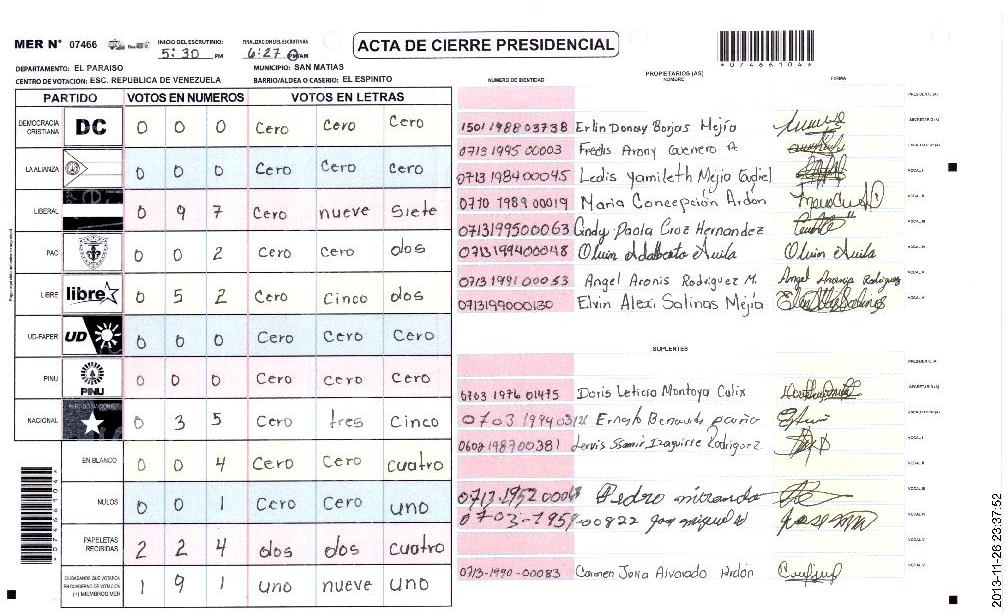 MER N° 07466 INICIO DEL ESCRUTINIO: 5:30 PM FINALIZACION DEL ESCRUTINIO: 6:27 PM ACTA DE CIERRE PRESIDENCIAL
DEPARTAMENTO: EL PARAISO MUNICIPIO: SAN MATIAS
CENTRO DE VOTACION: ESC. REPUBLICA DE VENEZUELA BARRIO/ALDEA O CASERIO: EL ESPINITO
PARTIDO VOTOS EN NUMEROS VOTOS EN LETRAS
DEMOCRACIA CRISTIANA DC 0 0 0 Cero Cero Cero
LA ALIANZA 0 0 0 Cero Cero Cero
LIBERAL 0 9 7 Cero nueve Siete
PAC 0 0 2 Cero Cero dos
LIBRE libre 0 5 2 Cero Cinco dos
UD-FAPER UD 0 0 0 Cero Cero Cero
PINU PINU 0 0 0 Cero Cero Cero
NACIONAL PARTIDO NACIONAL 0 3 5 Cero tres Cinco
EN BLANCO 0 0 4 Cero Cero cuatro
NULOS 0 0 1 Cero Cero uno
PAPELETAS RECIBIDAS 2 2 4 dos dos cuatro
CIUDADANOS QUE VOTARON EN CUADERNO DE VOTACION (+) MIEMBROS MER 1 9 1 uno nueve uno
*07466104*
NUMERO DE IDENTIDAD PROPIETARIOS (AS) NOMBRE FIRMA
PRESIDENTE (A)
1501 1988 03738 Erlin Donay Borjas Mejía SECRETARIO (A)
0713 1995 00003 Fredis Arony Guerrero A.
0713 1984 00045 Ledis Yamileth Mejia Gudiel VOCAL I
0710 1989 00019 Maria Concepción Ardón VOCAL II
0713199500063 Cindy Paola Cruz Hernandez VOCAL III
0713199400048 Olvin Adalberto Avila Olvin Avila VOCAL IV
0713 1991 00053 Angel Aronis Rodriguez M. VOCAL V
0713199000130 Elvin Alexi Salinas Mejía VOCAL VI
SUPLENTES
PRESIDENTE (A)
0703 1976 01475 Doris Leticia Montoya Calix SECRETARIO (A)
Ernesto
0602 198700381 VOCAL I
VOCAL II
Pedro miranda VOCAL III
0703-1959-00822 VOCAL IV
VOCAL V
0713-1990-00083 Carmen Julia Alvarado Ardón VOCAL VI
2013-11-26 23:37:52